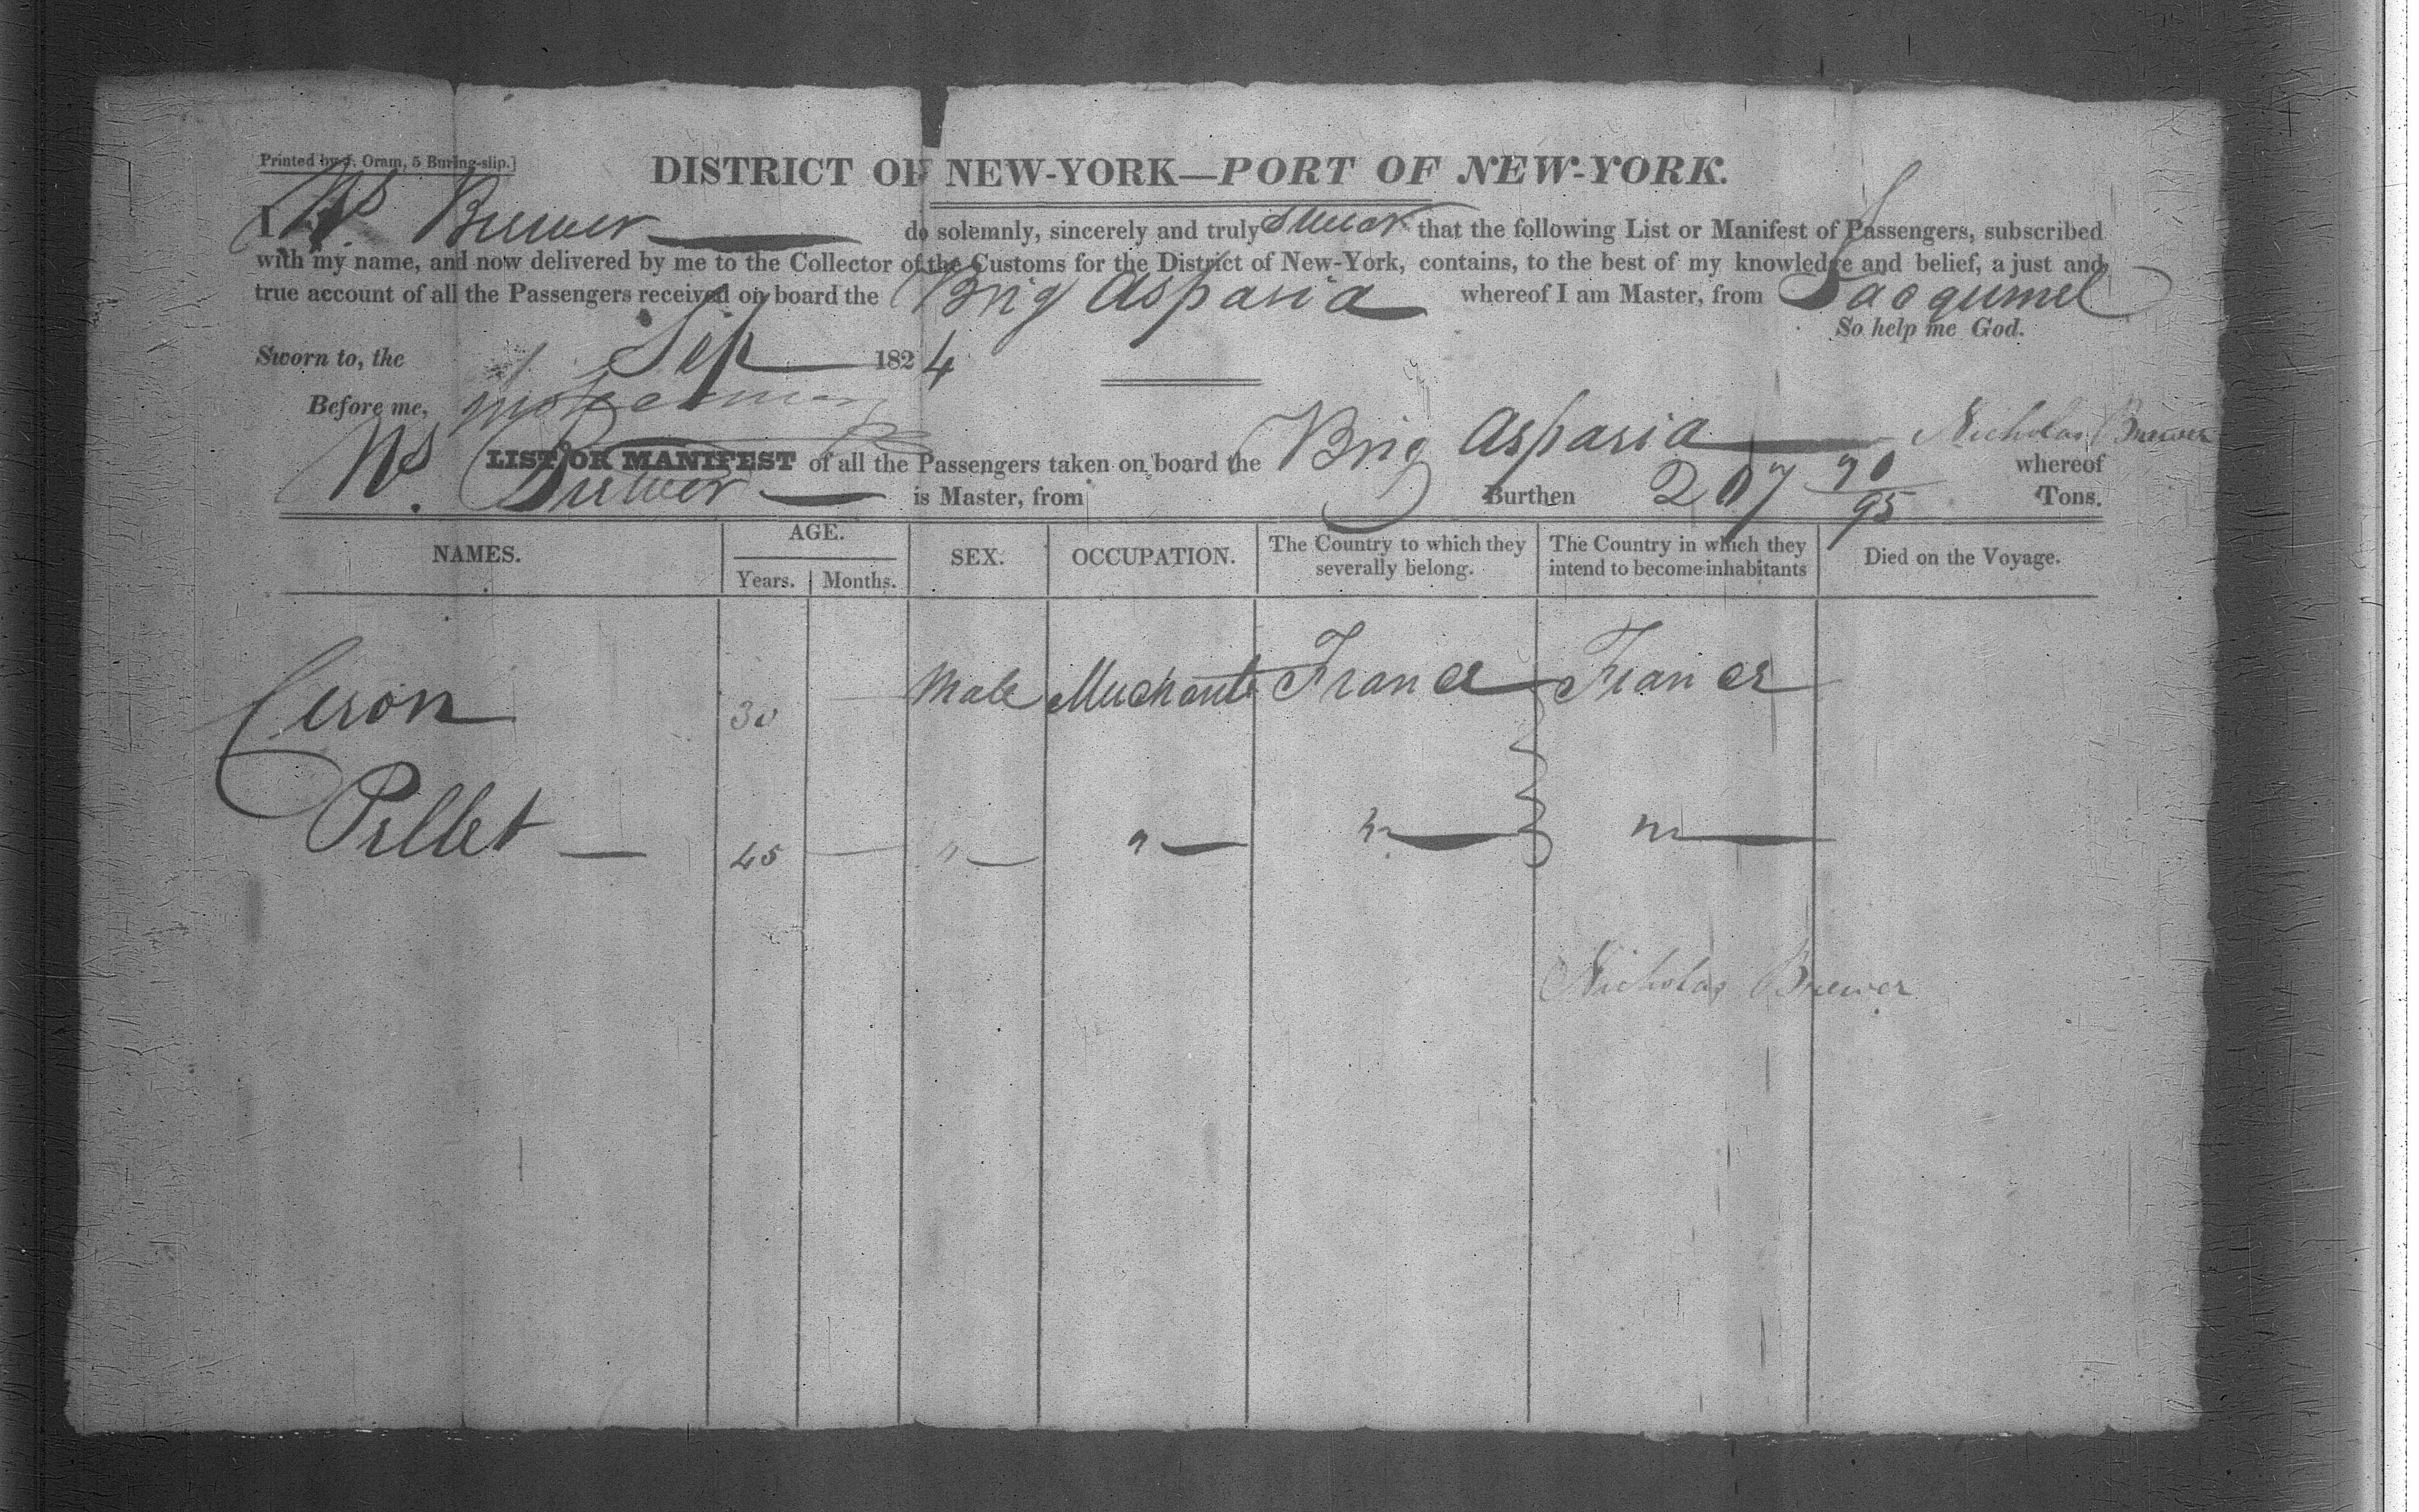 Printed by J. Oram, 5 Burling-slip.]
DISTRICT OF NEW-YORK—PORT OF NEW-YORK.
I Ns Brewer do solemnly, sincerely and truly swear that the following List or Manifest of Passengers, subscribed
with my name, and now delivered by me to the Collector of the Customs for the District of New-York, contains, to the best of my knowledge and belief, a just and
true account of all the Passengers received on board the Brig Aspasia whereof I am Master, from Jacqumel
So help me God.
Sworn to, the Sep 1824
Before me,
Nicholas Brewer
LIST OR MANIFEST of all the Passengers taken on board the Brig Aspasia whereof
Ns. Brewer is Master, from Burthen 207 70/95 Tons.
NAMES. AGE. SEX. OCCUPATION. The Country to which they severally belong. The Country in which they intend to become inhabitants Died on the Voyage.
Years. Months.
Ceron 30 Male Merchant France France
Pillet — 45 " — " — " — " —
Nicholas Brewer